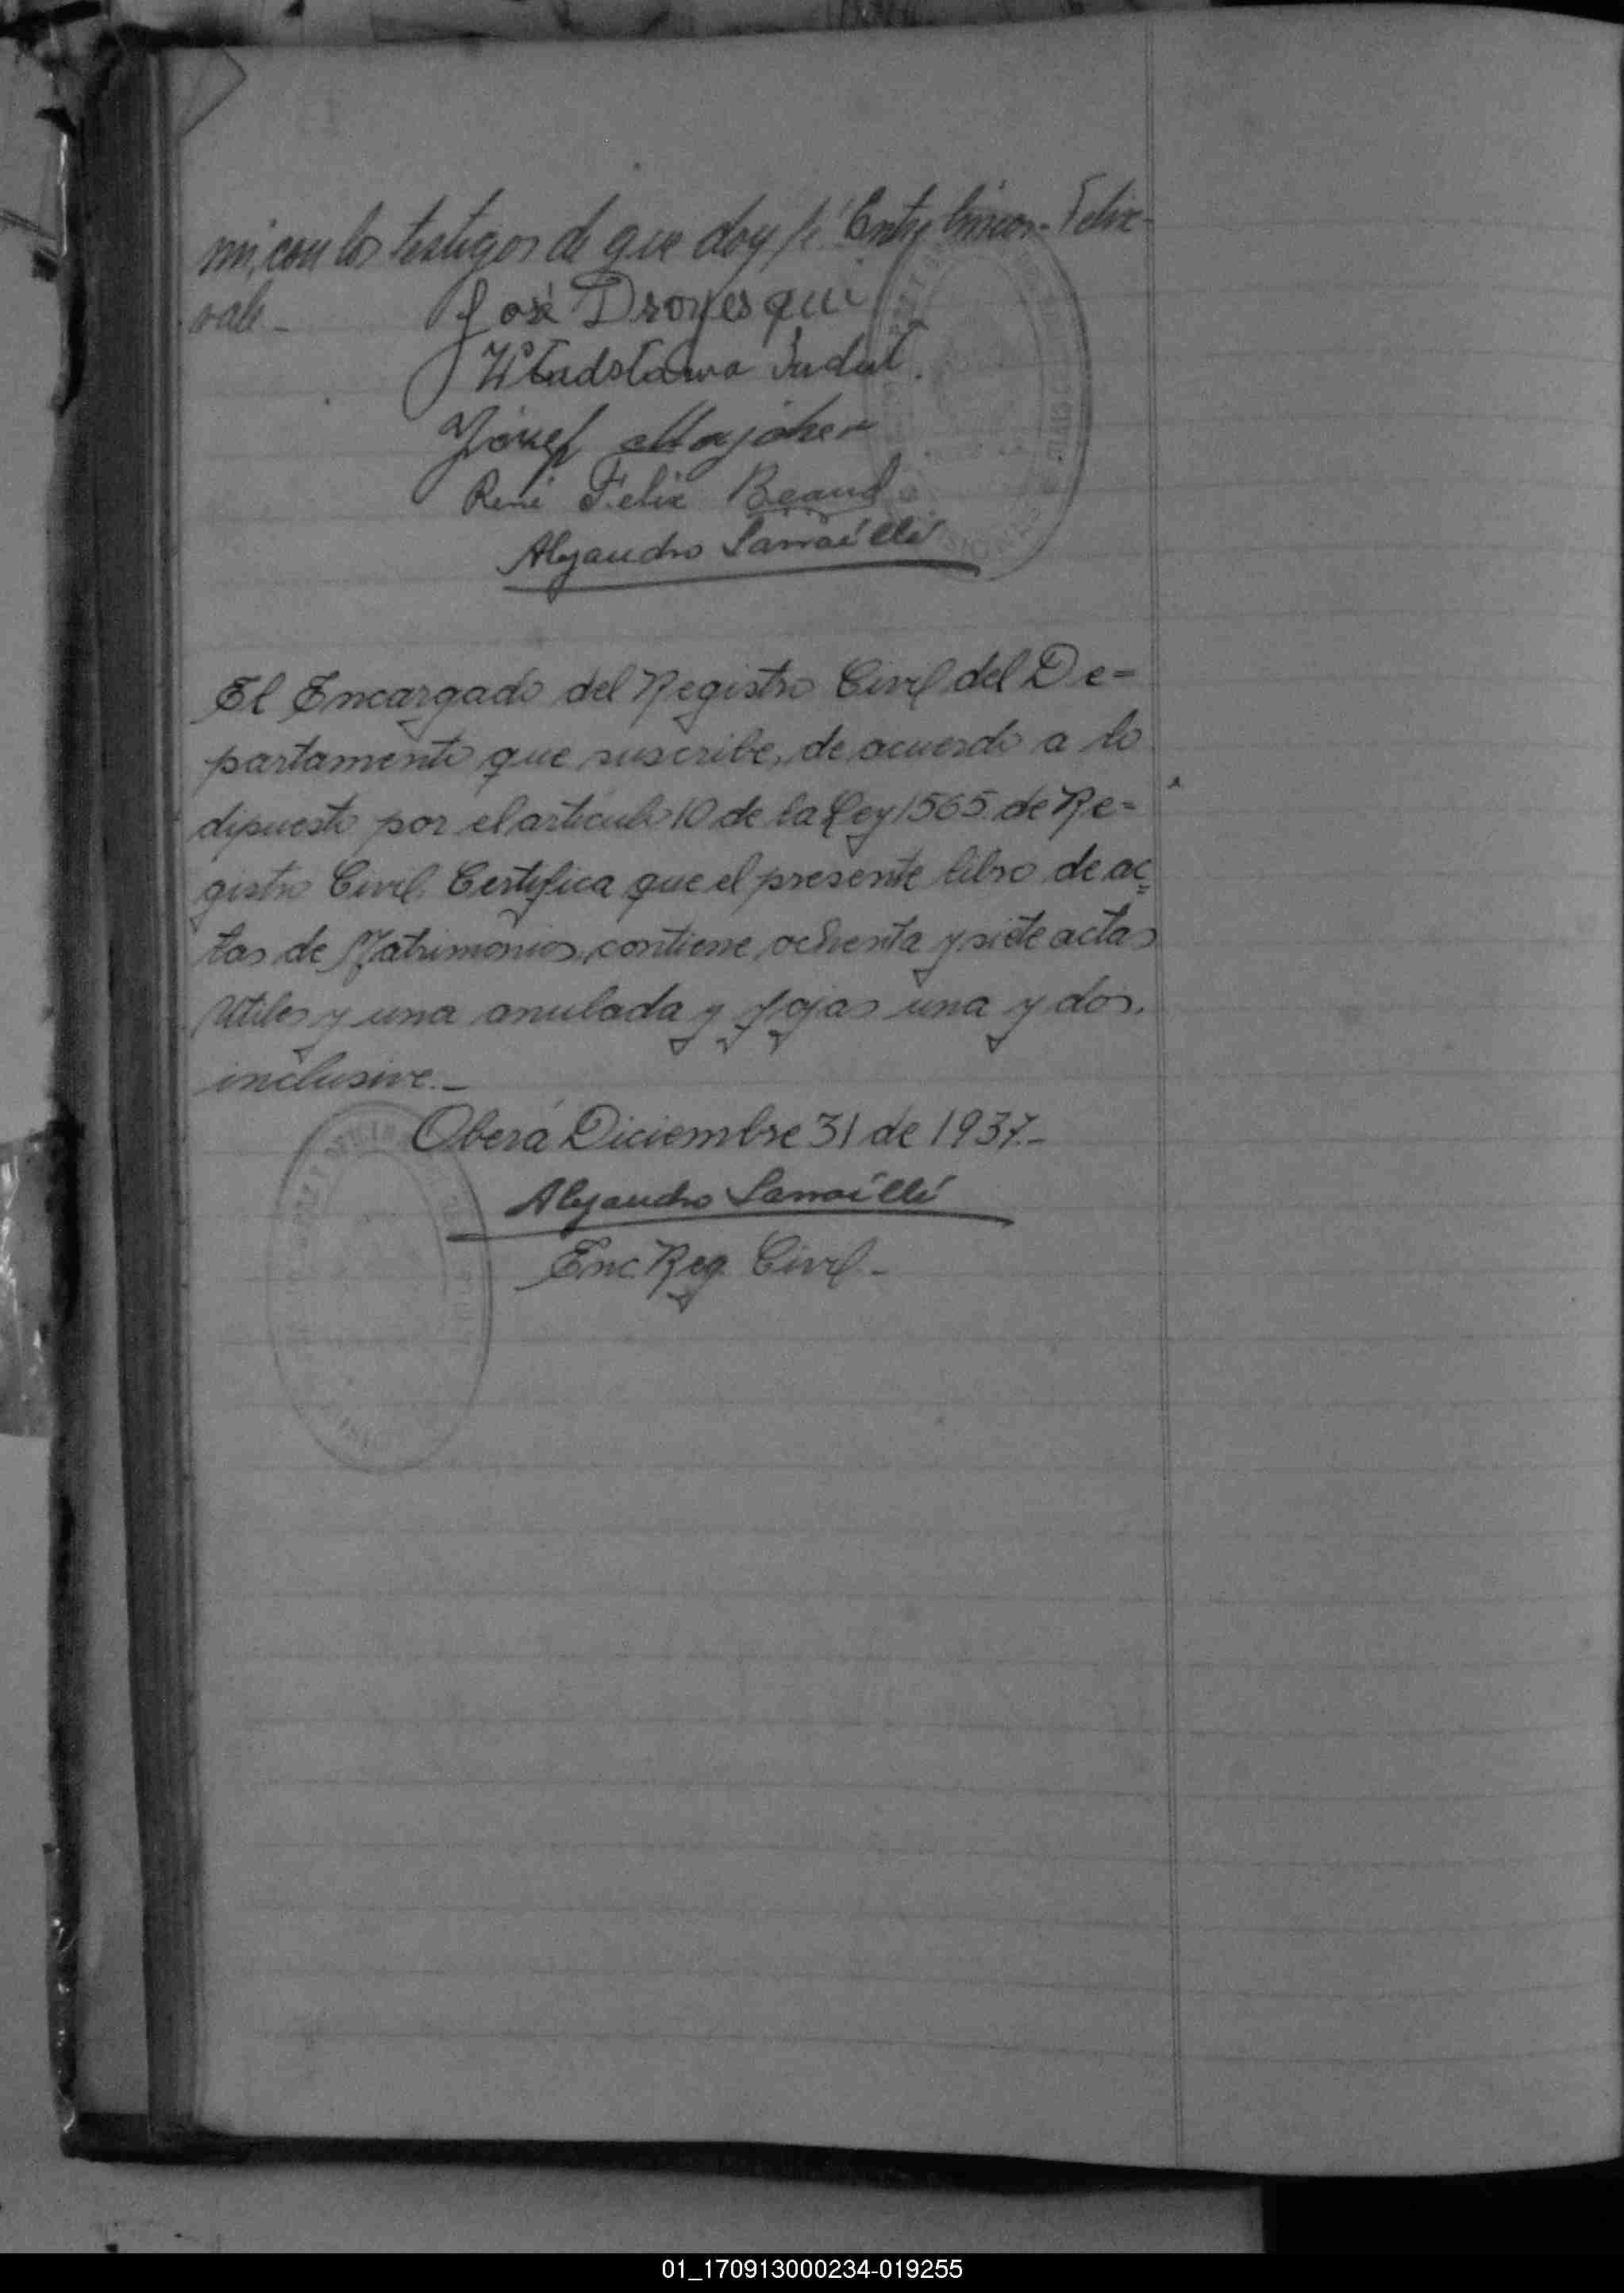 mi, con los testigos de que doy fé. Entre líneas - Felix -
vale -
José Droyesqui
Władsława Dudut
Józef Majcher
René Felix Beaud
Alejandro
El Encargado del Registro Civil del De=
partamento que suscribe, de acuerdo a lo
dipuesto por el artículo 10 de la Ley 1565 de Re=
gistro Civil. Certifica que el presente libro de ac=
tas de Matrimonios, contiene ochenta y siete actas
Utiles y una anulada y fojas una y dos.
inclusive. -
Oberá Diciembre 31 de 1937. -
Alejandro
Enc. Reg. Civil. -
01_170913000234-019255